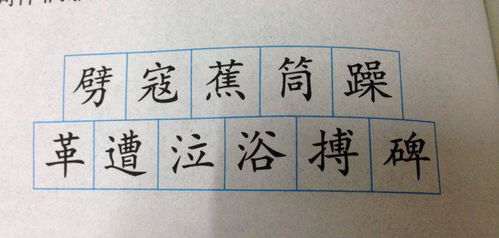 劈寇蕉筒躁
革遭泣浴搏碑